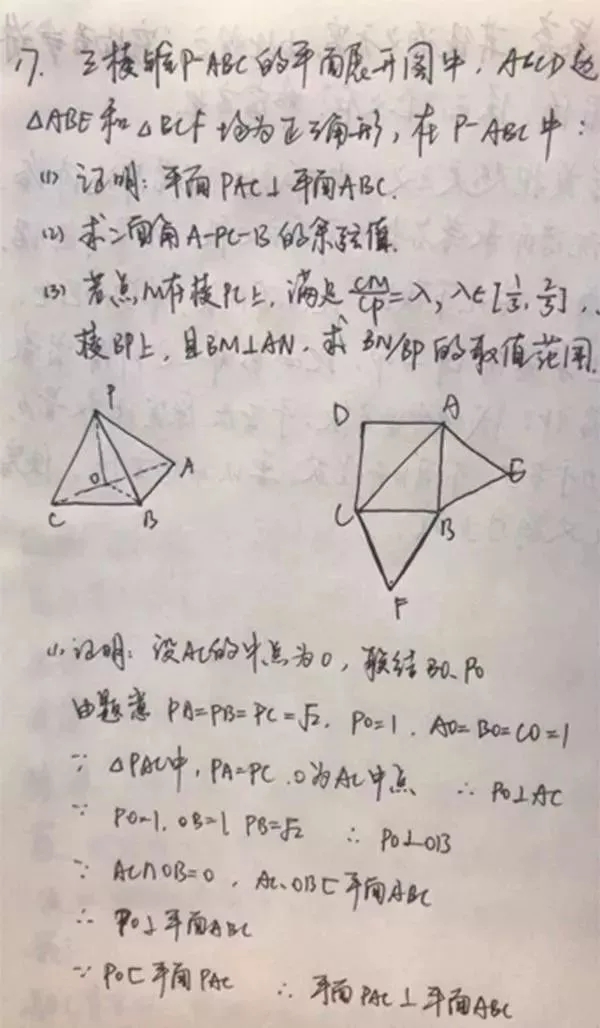 17. 三棱锥P-ABC的平面展开图中, ABCD是
△ABE和△BCF均为正三角形, 在P-ABC中:
(1) 证明: 平面PAC⊥平面ABC.
(2) 求二面角A-PC-B的余弦值.
(3) 若点M在棱PC上, 满足CM/CP=λ, λ∈[1/3, 2/3],
棱BP上, 且BM⊥AN. 求BN/BP的取值范围.
P
O
A
C
B
D
A
E
C
B
F
(1) 证明: 设AC的中点为O, 联结BO、PO
由题意 PA=PB=PC=√2, PO=1, AO=BO=CO=1
∵ △PAC中, PA=PC, O为AC中点 ∴ PO⊥AC
∵ PO=1, OB=1, PB=√2 ∴ PO⊥OB
∵ AC∩OB=O, AC、OB⊂平面ABC
∴ PO⊥平面ABC
∵ PO⊂平面PAC ∴ 平面PAC⊥平面ABC